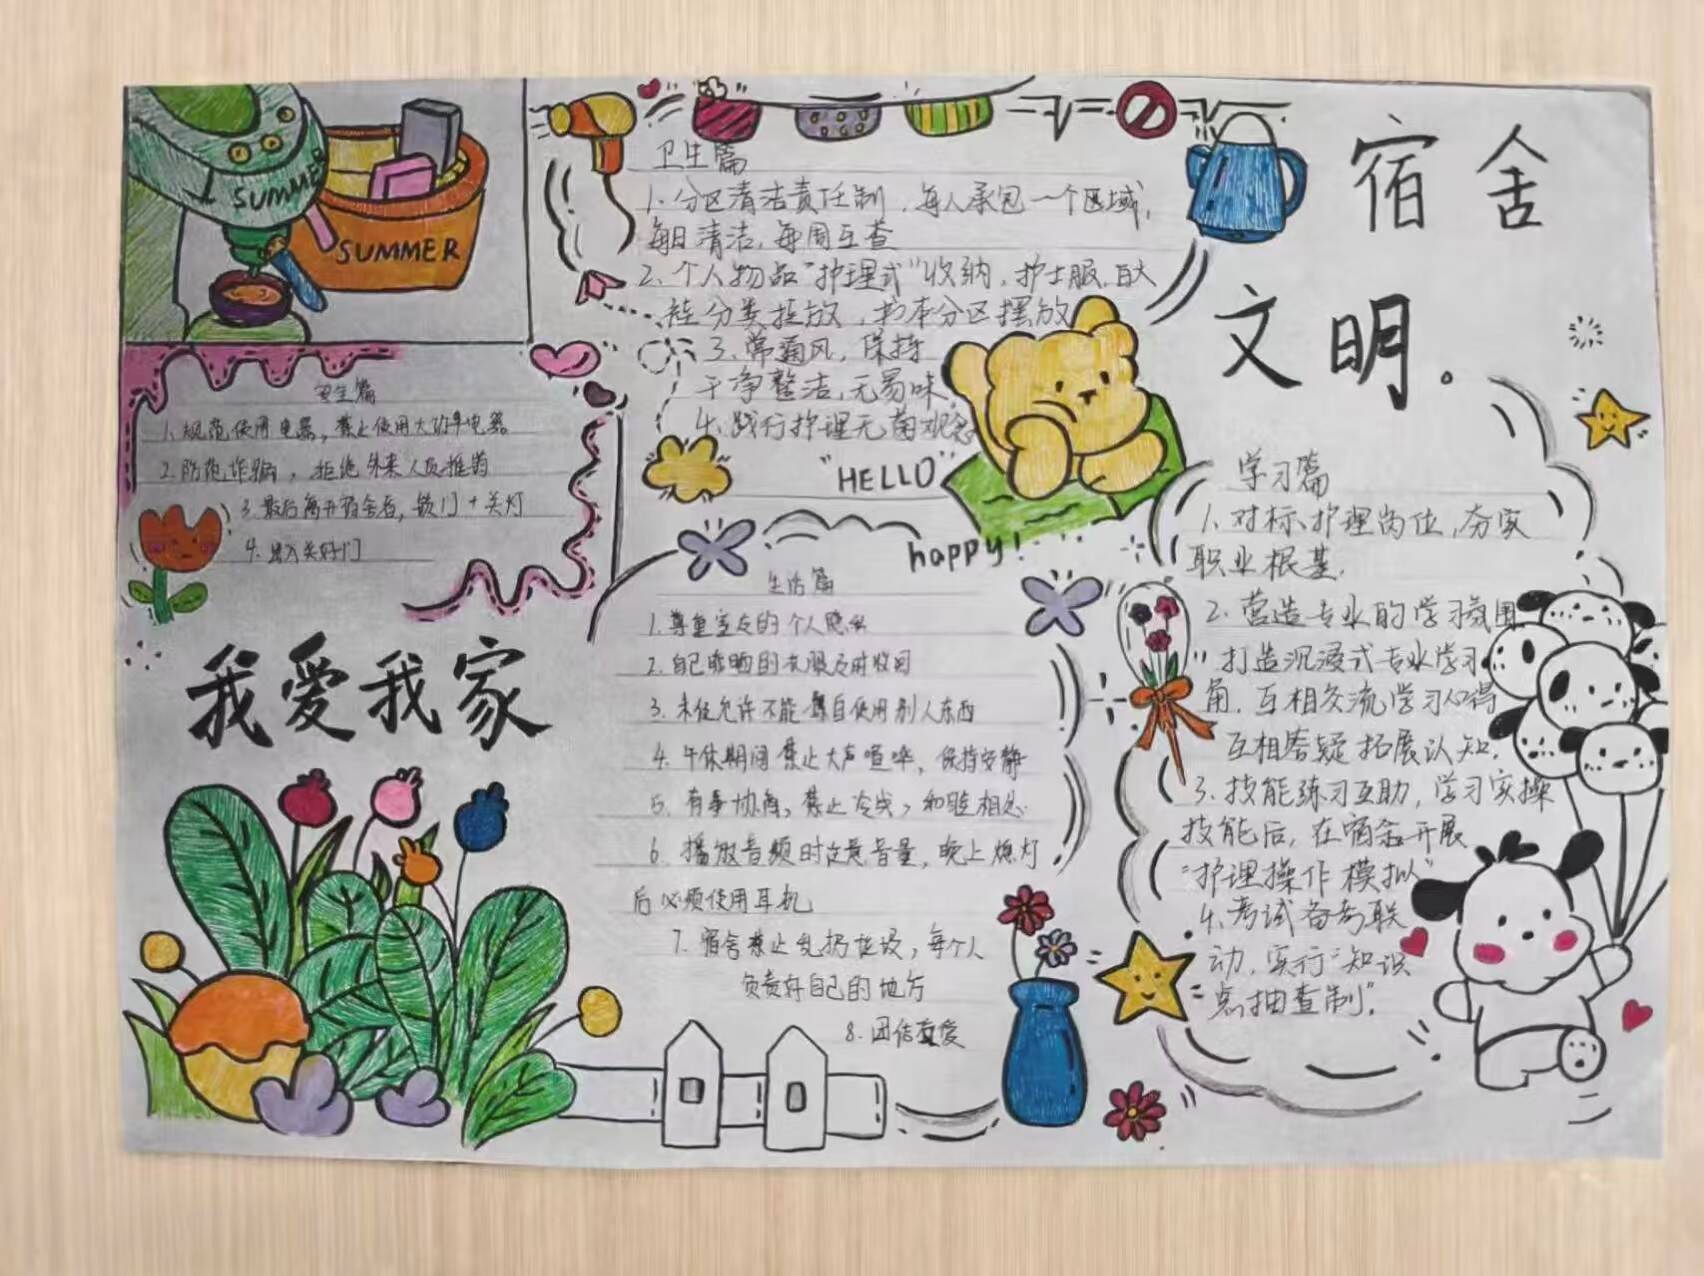 SUMMER
SUMMER
宿舍
文明。
卫生篇
1.分区清洁责任制，每人承包一个区域，
每日清洁，每周互查
2.个人物品"护理式"收纳，护士服，白大
褂分类挂放，书本分区摆放
3.常通风，保持
干净整洁，无易味
4.践行护理无菌观念
"HELLO"
happy!
安全篇
1.规范使用电器，禁止使用大功率电器
2.防范诈骗，拒绝外来人员推销
3.最后离开宿舍后，锁门+关灯
4.出入关好门
我爱我家
生活篇
1.尊重室友的个人隐私
2.自己晾晒的衣服及时收回
3.未经允许不能擅自使用别人东西
4.午休期间禁止大声喧哗，保持安静
5.有事协商，禁止冷战，和睦相处
6.播放音频时注意音量，晚上熄灯
后必须使用耳机
7.宿舍禁止乱扔垃圾，每个人
负责好自己的地方
8.团结友爱
学习篇
1.对标护理岗位，夯实
职业根基.
2.营造专业的学习氛围
"打造沉浸式专业学习
角，互相交流学习心得
互相答疑拓展认知.
3.技能练习互助，学习实操
技能后，在宿舍开展
"护理操作模拟"
4.考试备考联
动，实行"知识
点抽查制".